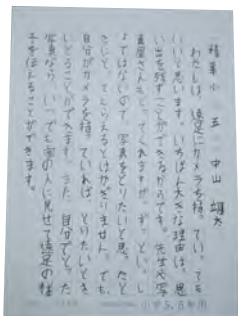 精華小　五　中山　雄大
わたしは、遠足にカメラを持っていっても
いいと思います。いちばん大きな理由は、思
い出を残すことができるからです。先生や写
真屋さんもとってくれますが、ずっといっし
ょではないので、写真をとりたいと思ったと
きに、とってもらえるとはかぎりません。でも
自分がカメラを持っていれば、とりたいとき
にとることができます。また、自分でとった
写真なら、いつでも家の人に見せて遠足の様
子を伝えることができます。